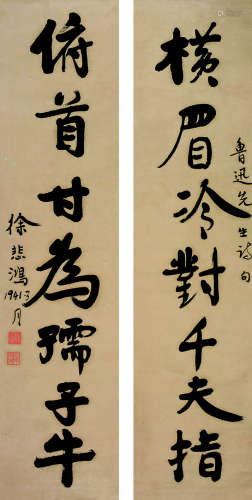 橫眉冷對千夫指
魯迅先生詩句
俯首甘為孺子牛
徐悲鴻